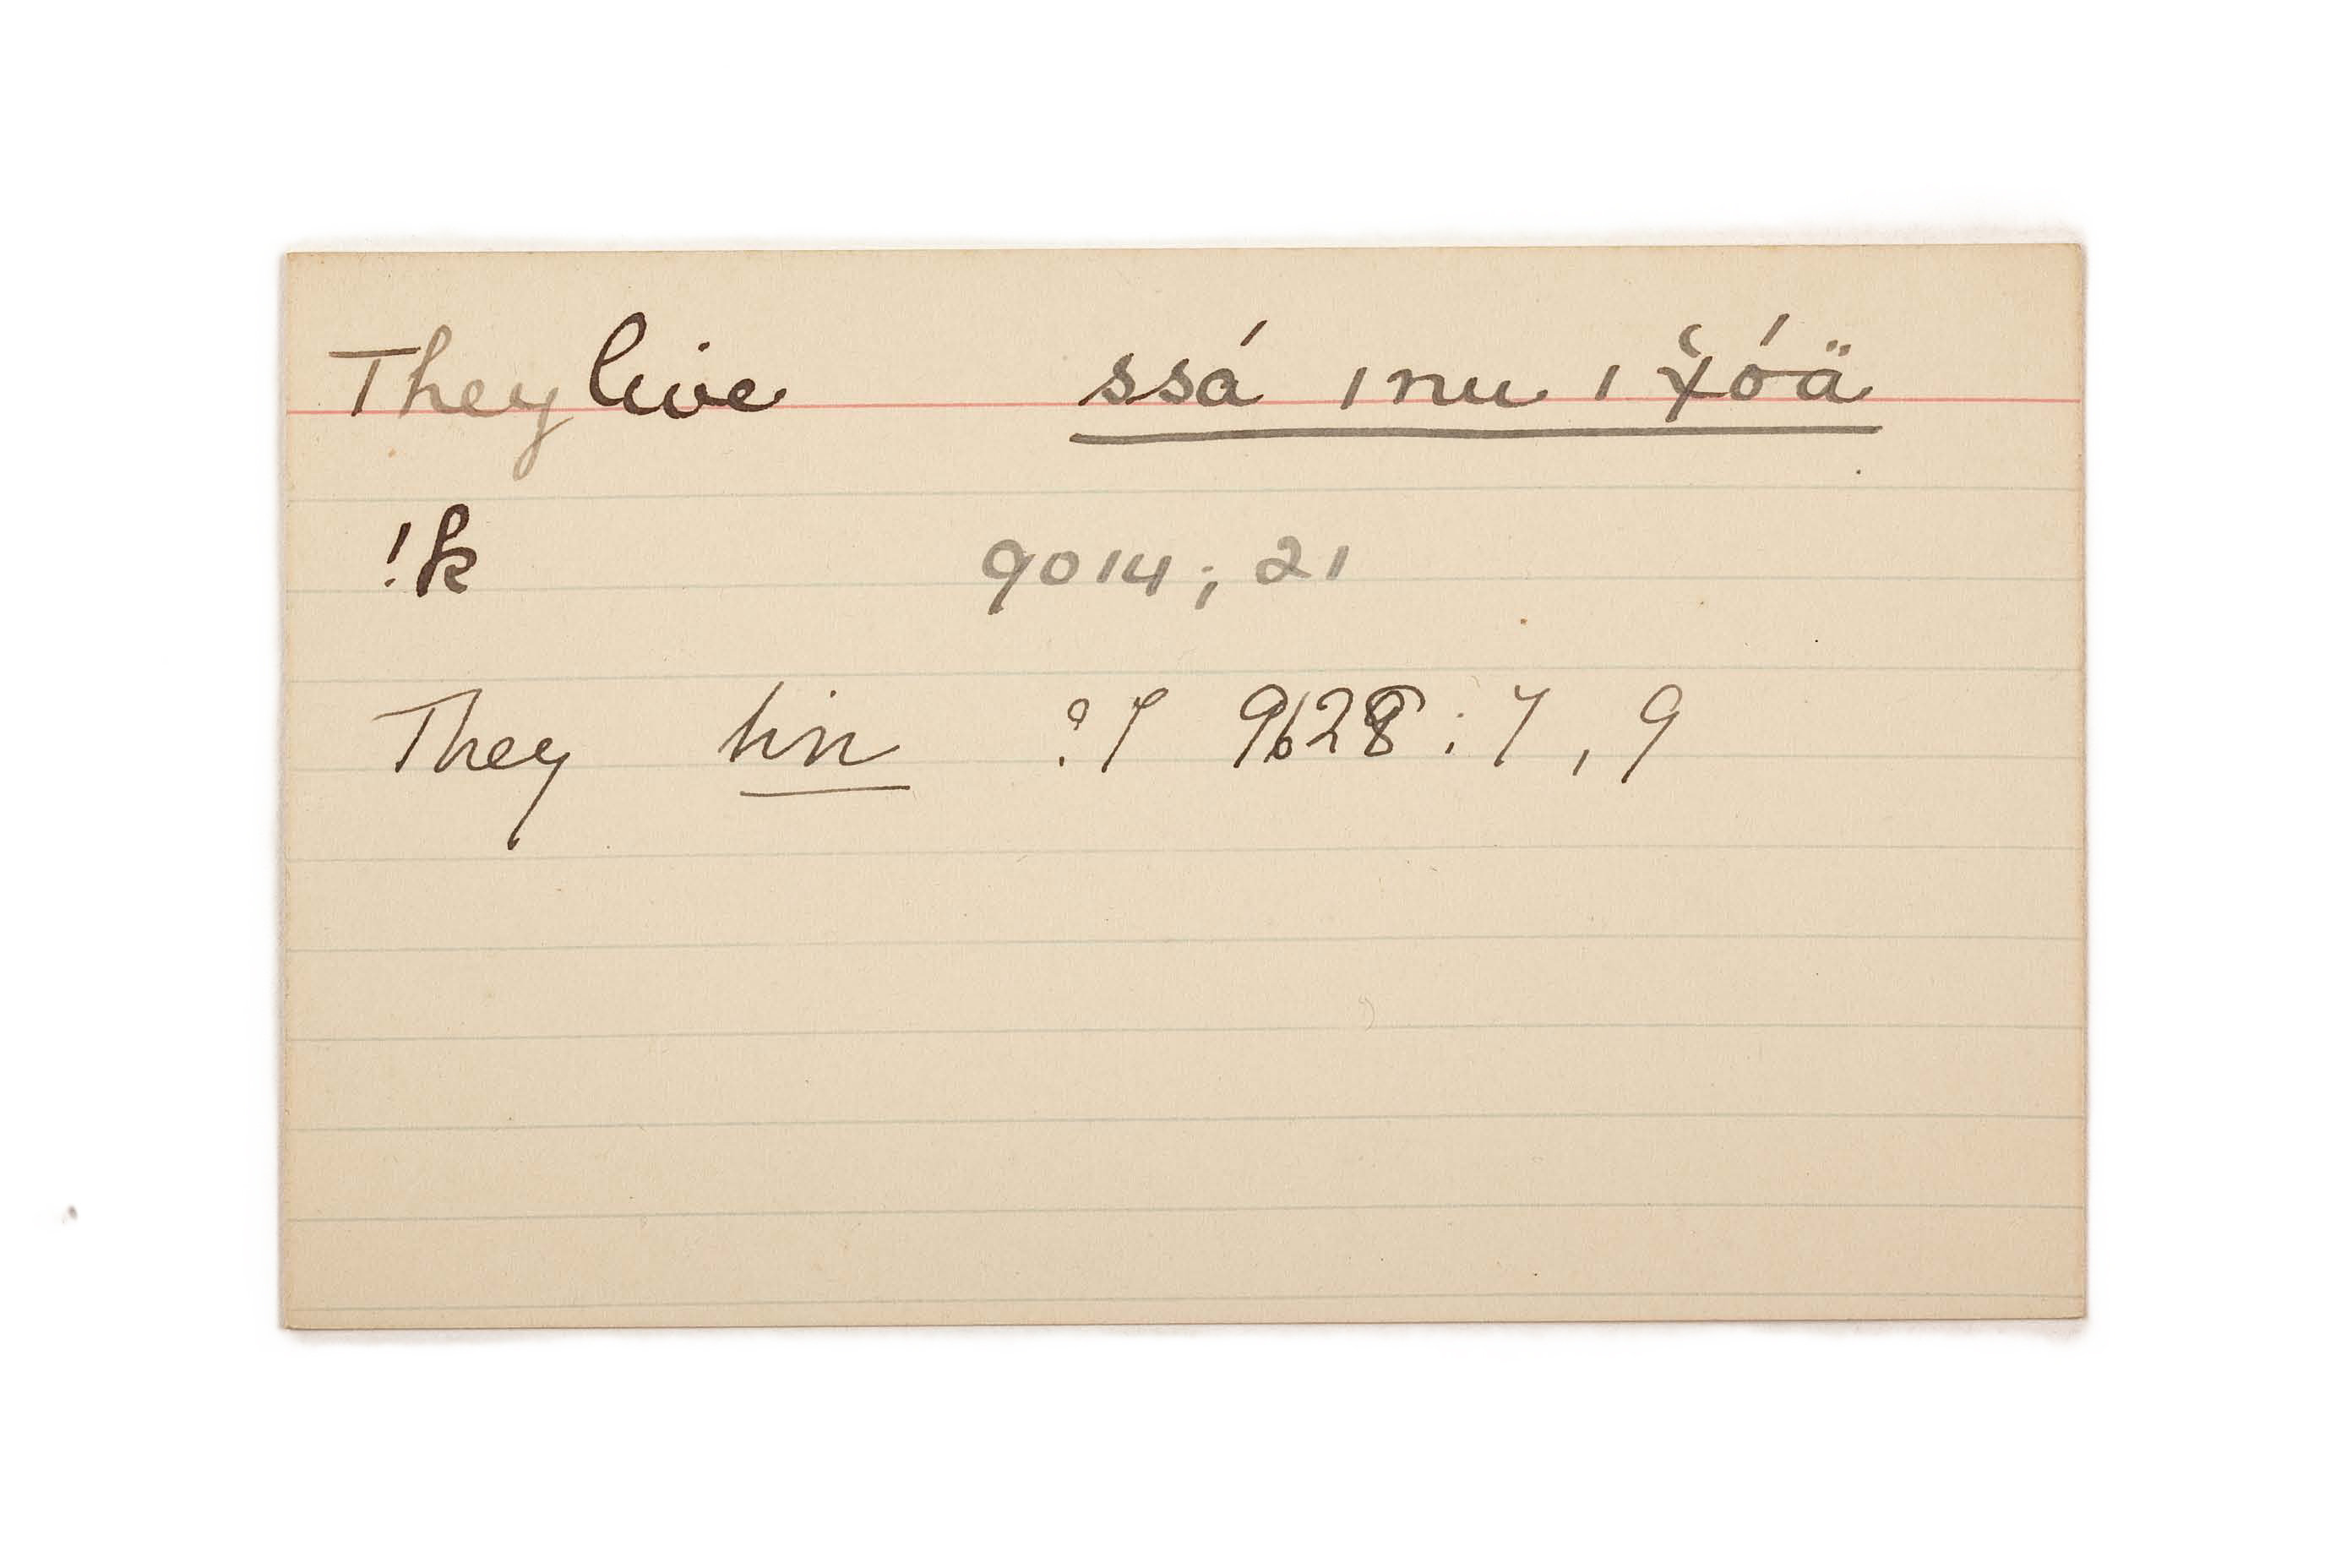 They live ssá ınu ı χ̆óä
!k 9014; 21
They hin ?Y 9628: 7, 9